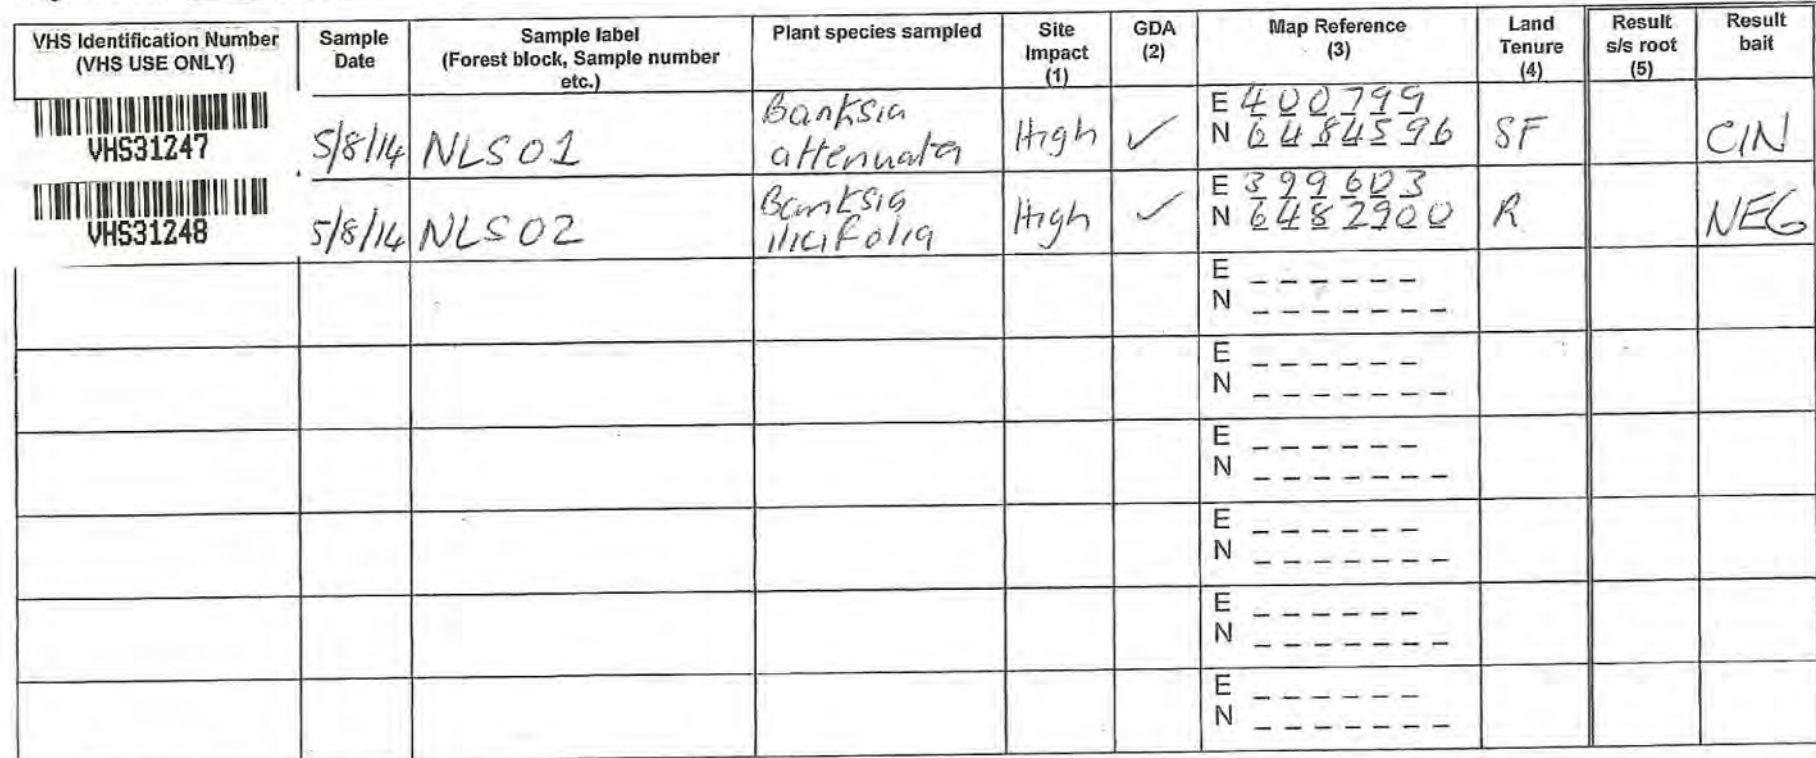 VHS Identification Number
(VHS USE ONLY)
Sample
Date
Sample label
(Forest block, Sample number
etc.)
Plant species sampled
Site
Impact
(1)
GDA
(2)
Map Reference
(3)
Land
Tenure
(4)
Result
s/s root
(5)
Result
bait
VHS31247
5/8/14
NLS01
Banksia
attenuata
High
✓
E 400799
N 6484596
SF
CIN
VHS31248
5/8/14
NLS02
Banksia
ilicifolia
High
✓
E 399603
N 6482900
R
NEG
E _ _ _ _ _ _
N _ _ _ _ _ _ _
E _ _ _ _ _ _
N _ _ _ _ _ _ _
E _ _ _ _ _ _
N _ _ _ _ _ _ _
E _ _ _ _ _ _
N _ _ _ _ _ _ _
E _ _ _ _ _ _
N _ _ _ _ _ _ _
E _ _ _ _ _ _
N _ _ _ _ _ _ _